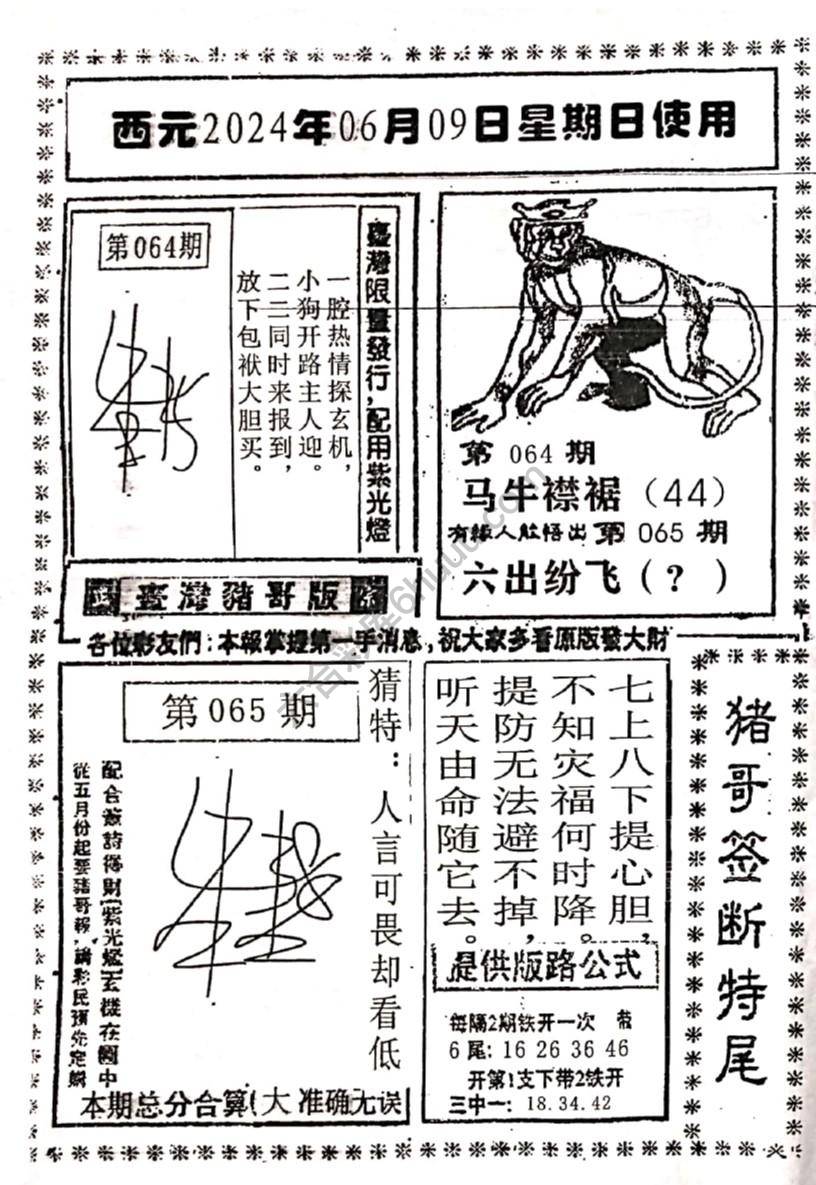 西元2024年06月09日星期日使用
第064期
一腔热情探玄机，
小狗开路主人迎。
二三同时来报到，
放下包袱大胆买。
臺灣限量發行，配用紫光燈
第 064 期
马牛襟裾（44）
有緣人能悟出第 065 期
六出纷飞（？）
臺灣豬哥版
各位彩友們：本報掌握第一手消息，祝大家多看原版發大財
第 065 期
猜特：人言可畏却看低
配合簽詩得財[紫光燈]玄機在圖中
從五月份起要豬哥報，請彩民預先定購
本期总分合算(大 准确无误
七上八下提心胆，
不知灾福何时降。
提防无法避不掉，
听天由命随它去。
提供版路公式
每隔2期铁开一次 带
6 尾: 16 26 36 46
开第1支下带2铁开
三中一: 18.34.42
猪哥签断特尾